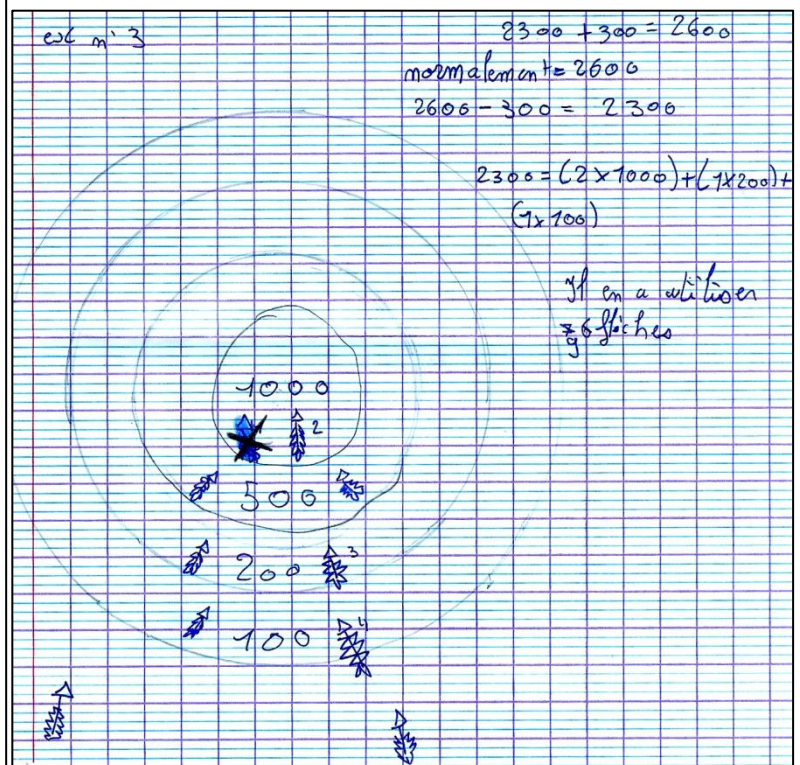 exc n° 3
2300 + 300 = 2600
normalement = 2600
2600 - 300 = 2300
2300 = (2 x 1000) + (1 x 200) +
(1 x 100)
Il en a utiliser
6 flèches
1000
2
500
200 3
100 4